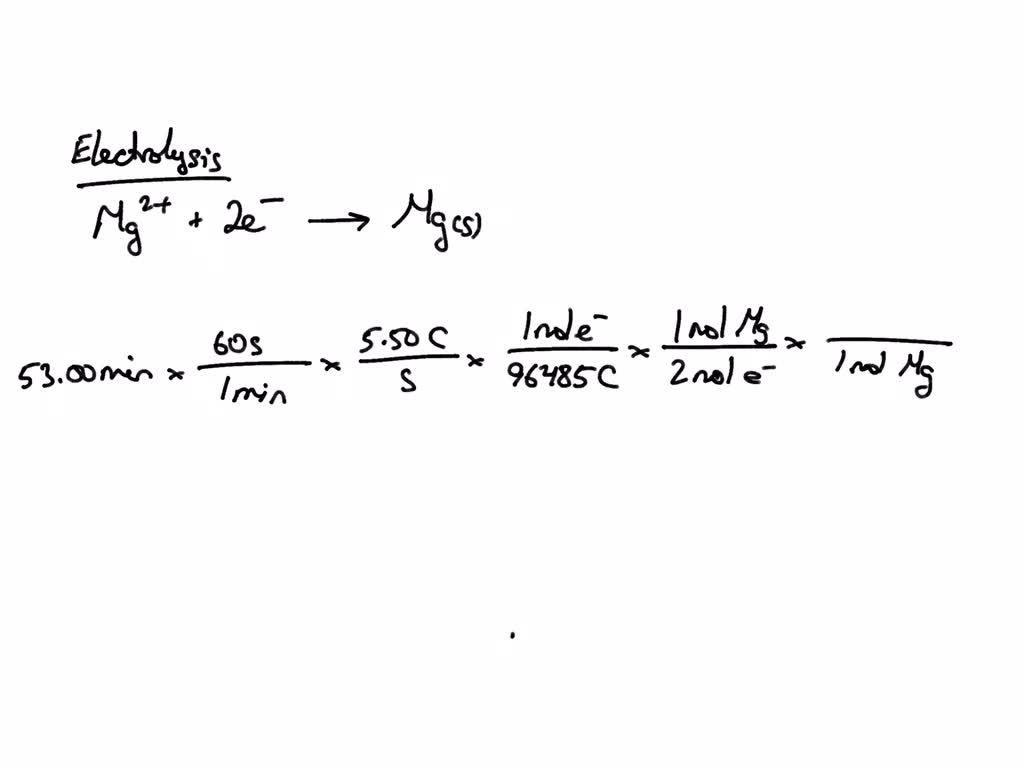 Electrolysis
Mg²⁺ + 2e⁻ → Mg(s)
53.00min × 60s/1min × 5.50C/S × 1mole⁻/96485C × 1mol Mg/2mol e⁻ × /1mol Mg